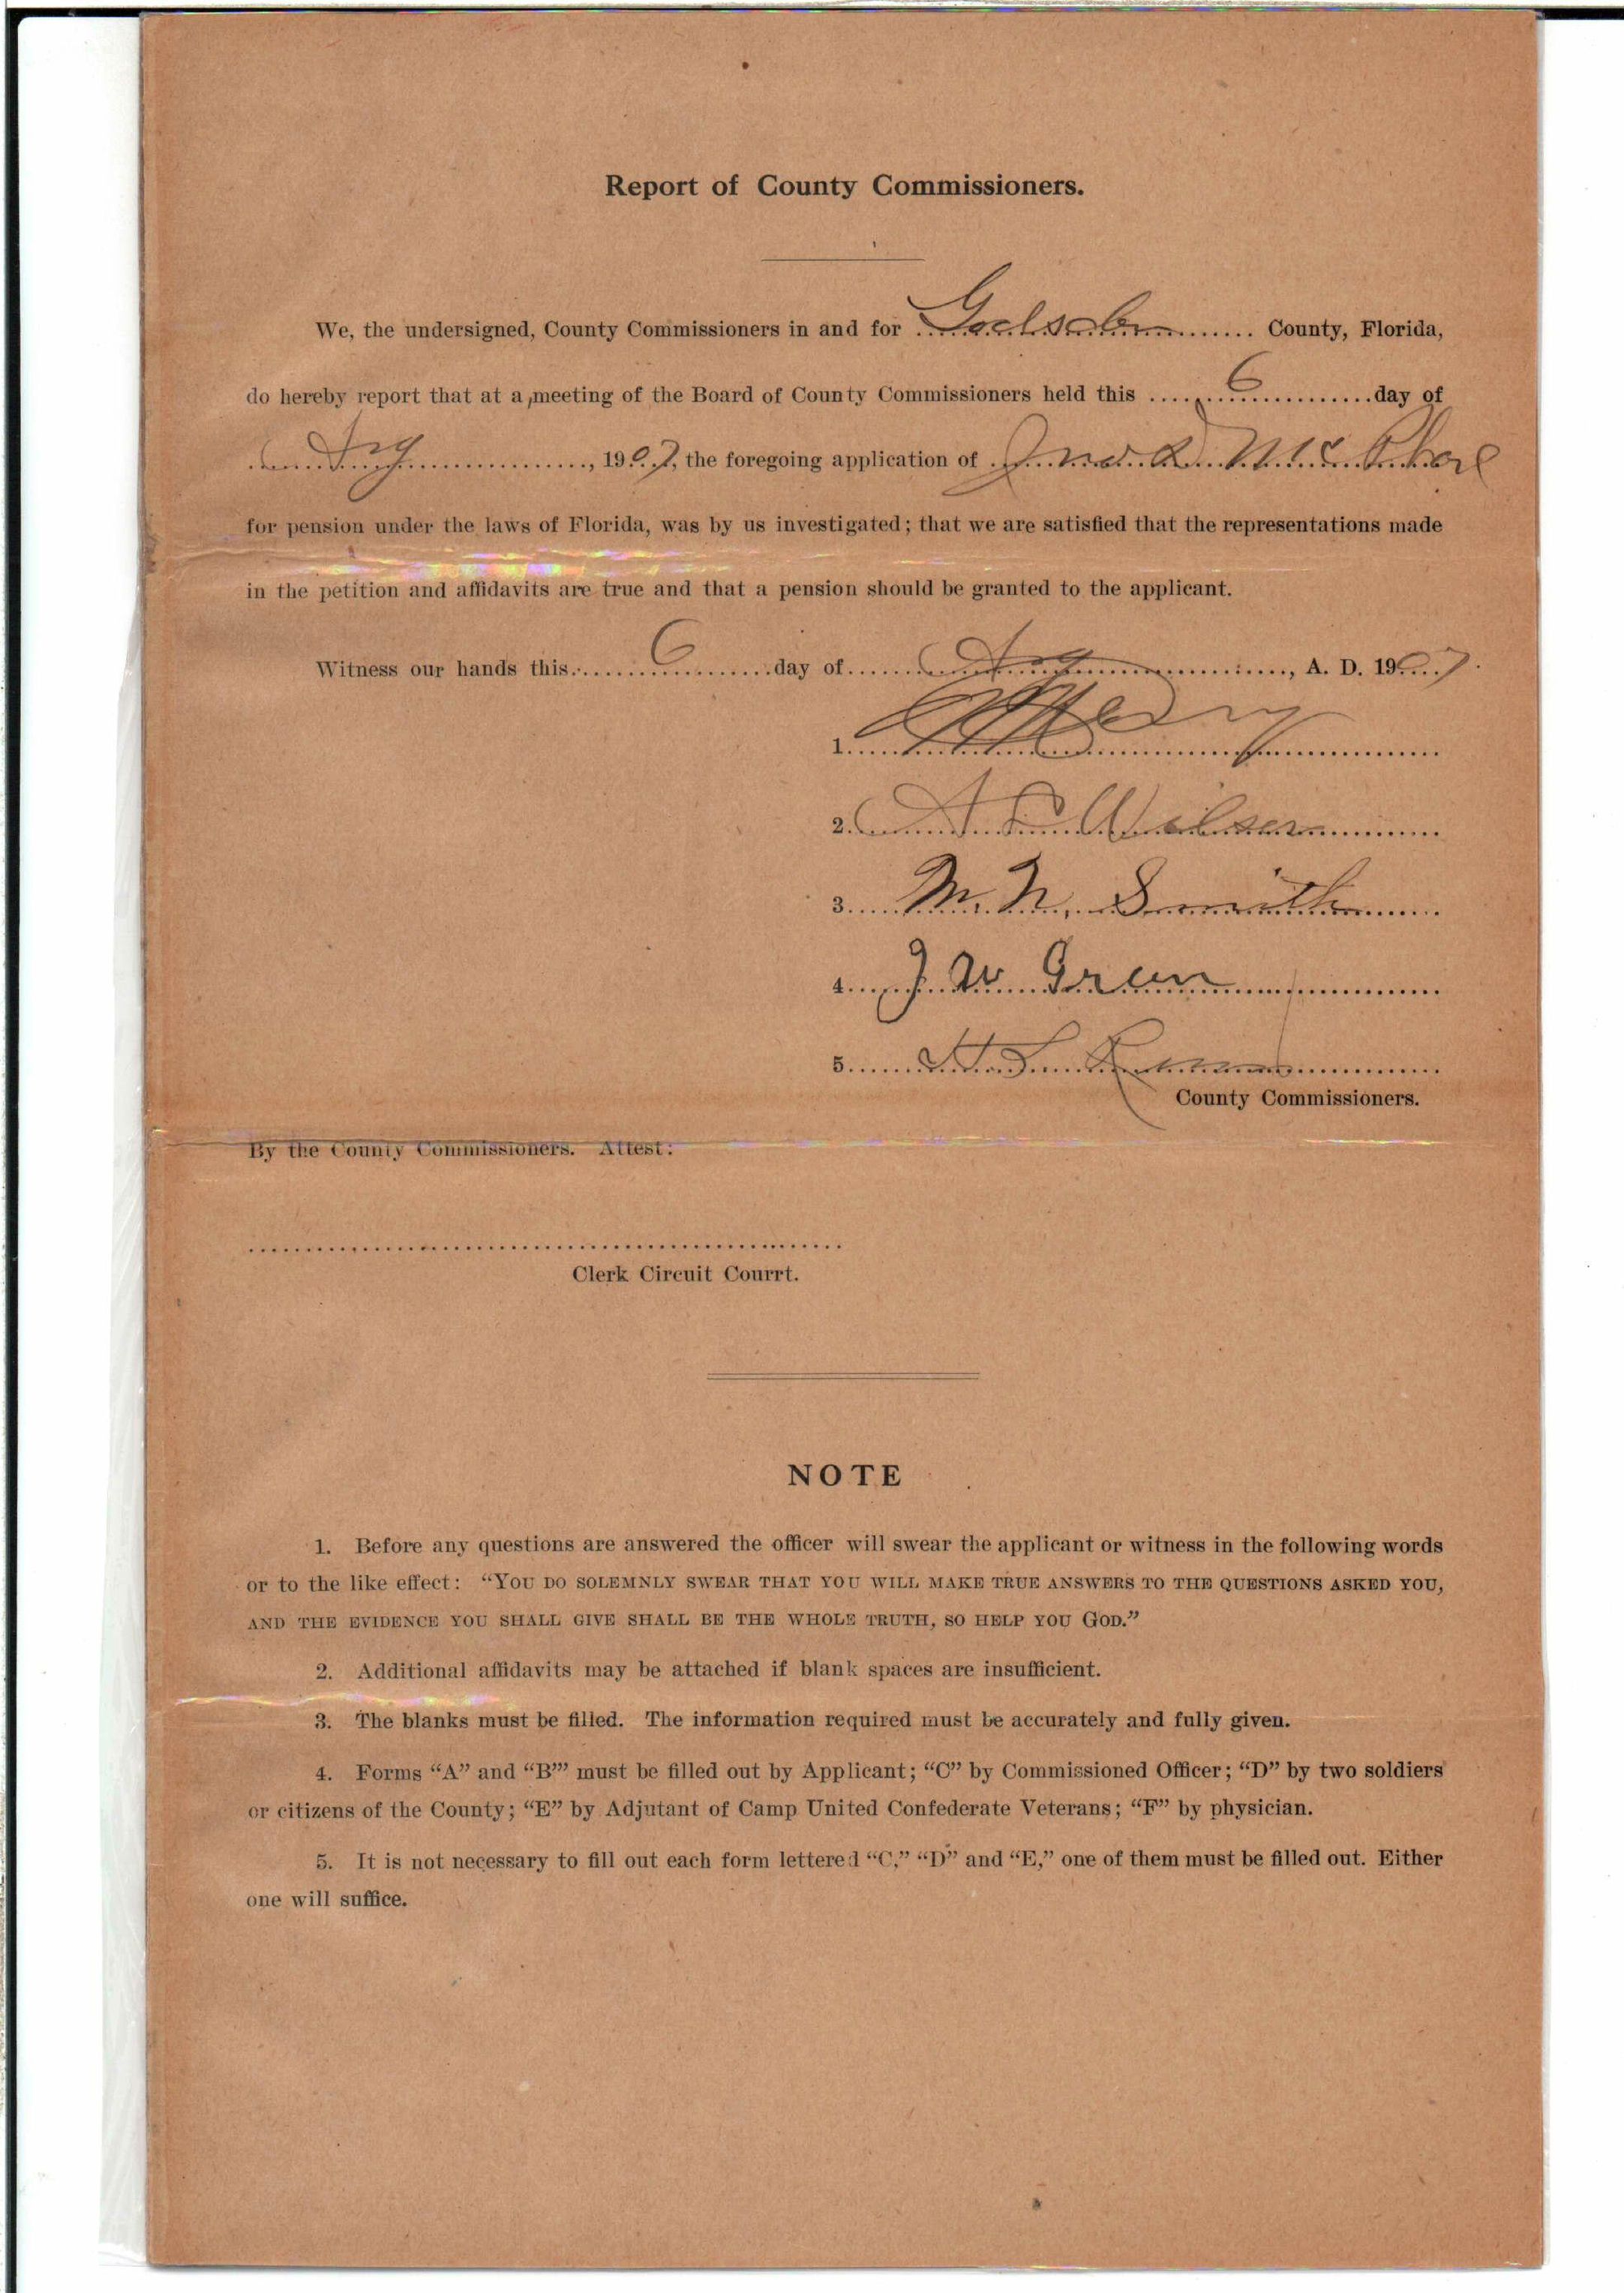 Report of County Commissioners.
We, the undersigned, County Commissioners in and for Gadsden County, Florida,
do hereby report that at a meeting of the Board of County Commissioners held this 6 day of
Aug, 1907, the foregoing application of Jno. McPhaul
for pension under the laws of Florida, was by us investigated; that we are satisfied that the representations made
in the petition and affidavits are true and that a pension should be granted to the applicant.
Witness our hands this 6 day of Aug, A. D. 1907.
1.
2. Wilson
3. M. N. Smith
4. J W Green
5.
County Commissioners.
By the County Commissioners. Attest:
Clerk Circuit Courrt.
NOTE
1. Before any questions are answered the officer will swear the applicant or witness in the following words
or to the like effect: “YOU DO SOLEMNLY SWEAR THAT YOU WILL MAKE TRUE ANSWERS TO THE QUESTIONS ASKED YOU,
AND THE EVIDENCE YOU SHALL GIVE SHALL BE THE WHOLE TRUTH, SO HELP YOU GOD.”
2. Additional affidavits may be attached if blank spaces are insufficient.
3. The blanks must be filled. The information required must be accurately and fully given.
4. Forms “A” and “B’” must be filled out by Applicant; “C” by Commissioned Officer; “D” by two soldiers
or citizens of the County; “E” by Adjutant of Camp United Confederate Veterans; “F” by physician.
5. It is not necessary to fill out each form lettered “C,” “D” and “E,” one of them must be filled out. Either
one will suffice.